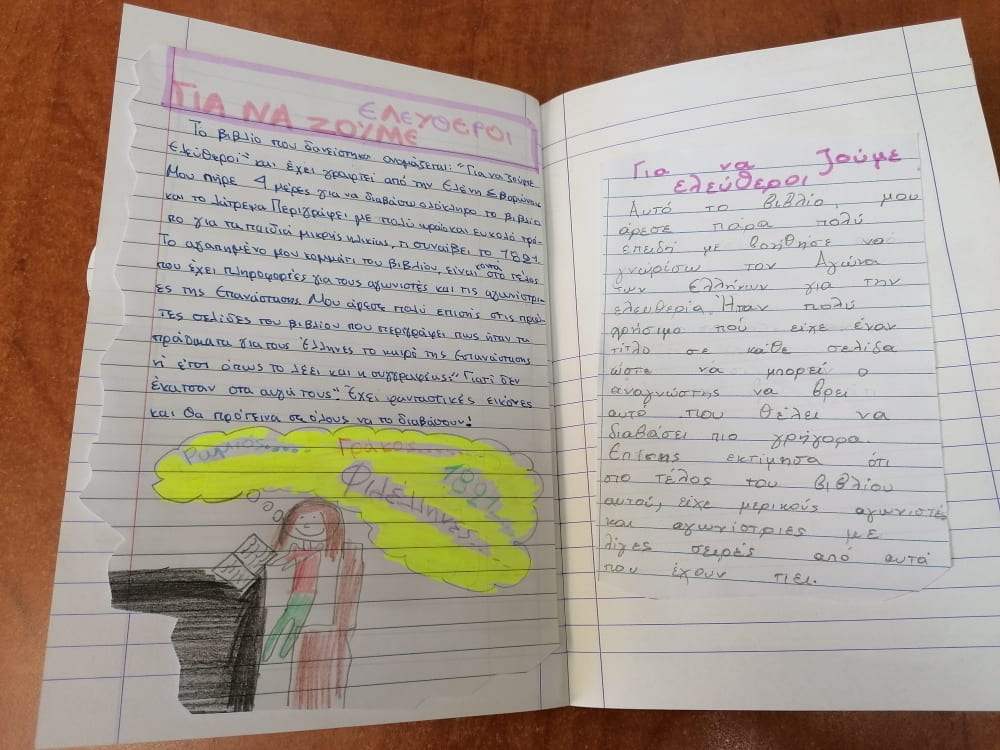 ΓΙΑ ΝΑ ΖΟΥΜΕ ΕΛΕΥΘΕΡΟΙ
Το βιβλίο που δανείστηκα ονομάζεται: "Για να ζούμε
Ελεύθεροι" και έχει γραφτεί από την Ελένη
Μου πήρε 4 μέρες για να διαβάσω ολόκληρο το βιβλίο
και το λάτρεψα. Περιγράφει με πολύ ωραίο και εύκολο τρό-
πο για τα παιδιά μικρής ηλικίας, τι συναίβει το 1821.
Το αγαπημένο μου κομμάτι του βιβλίου, είναι κοντά στο τέλος
που έχει πληροφορίες για τους αγωνιστές και τις αγωνίστρι-
ες της Επανάστασης. Μου άρεσε πολύ επίσης στις πρώ-
τες σελίδες του βιβλίου που περιγράφει πως ήταν τα
πράγματα για τους Έλληνες το καιρό της Επανάστασης
ή έτσι όπως το λέει και η συγγραφέας: "Γιατί δεν
έκατσαν στα αυγά τους". Έχει φανταστικές εικόνες
και θα πρότεινα σε όλους να το διαβάσουν!
Ρωμιός...... Γραικός........
Φιλέλληνες
1821
Για να ζούμε
ελεύθεροι
Αυτό το βιβλίο, μου
άρεσε πάρα πολύ
επειδή με βοήθησε να
γνωρίσω τον Αγώνα
των Ελλήνων για την
ελευθερία. Ήταν πολύ
χρήσιμο πού είχε έναν
τίτλο σε κάθε σελίδα
ώστε να μπορεί ο
αναγνώστης να βρει
αυτό που θέλει να
διαβάσει πιο γρήγορα.
Επίσης εκτίμησα ότι
στο τέλος του βιβλίου
αυτού, είχε μερικούς αγωνιστές
και αγωνίστριες με
λίγες σειρές από αυτά
που έχουν πει.